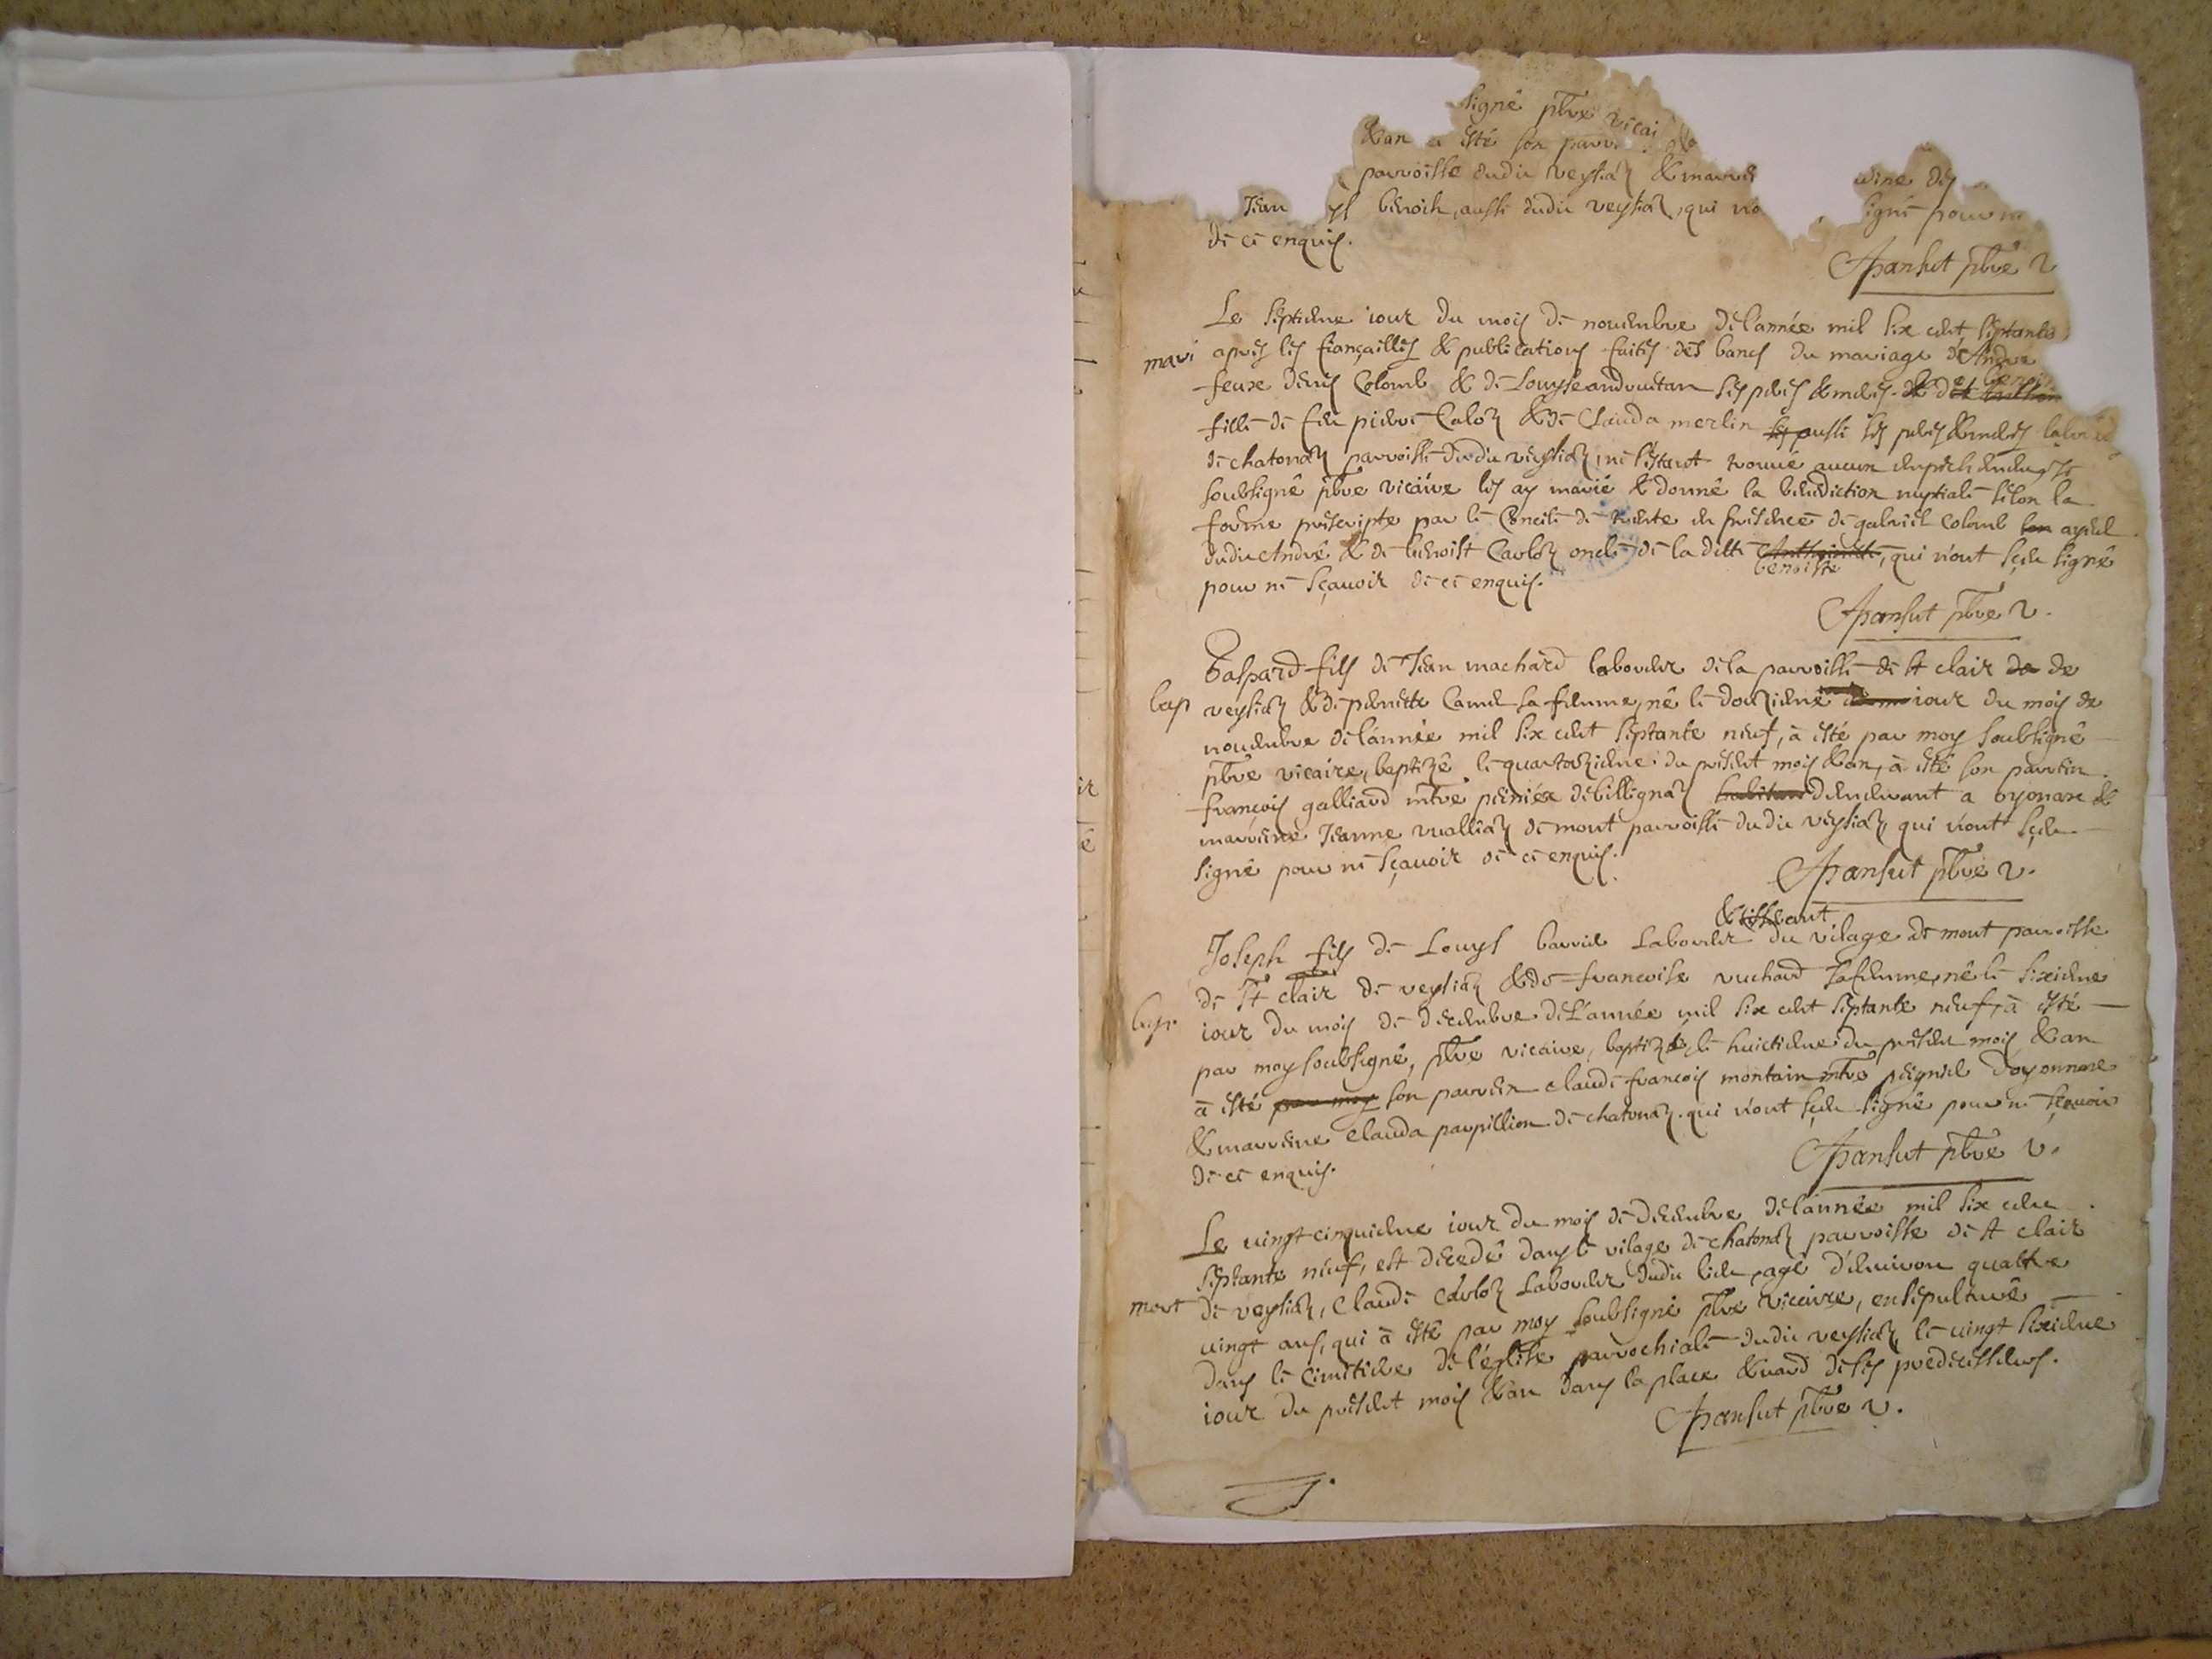 signé pbre vicai
& an a esté son parr
parroisse dudit veysiaz & marr
Jean benoit, aussi dudit veysiaz, qui n'o signé pour n
de ce enquis.
Pansut pbre v
Le septieme iour du mois de novembre de l'année mil six cent septante
mari
apres les fiançailles & publications faites des bancs du mariage d'Andre
feux denis Colomb & de Louyse ses peres & meres & de benoiste
fille de feu pierre Carloz & de Clauda merlin aussi ses peres & meres
de chatonaz parroisse dudit veysiaz, ne s'estant trouvé aucun empeschement je
soubsigné pbre vicaire les ay marié & donné la benediction nuptiale selon la
forme prescripte par le Concile de trente en presence de gabriel Colomb ayeul
dudit André & de benoist Carloz oncle de la ditte Anthoinette, qui n'ont sceu signé
benoiste
pour ne sçavoir de ce enquis.
Pansut pbre v.
Gaspard fils de Jean machard laboureur de la parroisse de st clair de
bap
veysiaz & de pernette Camel sa femme, né le douzieme iour du mois de
novembre de l'année mil six cent septante neuf, à esté par moy soubsigné
pbre vicaire, baptizé le quatorzieme du present mois & an, à esté son parrein
françois galliard mtre peinier de billignaz habitant demeurant a oyonax &
marreine Jeanne vualliaz de mont parroisse dudit veysiaz qui n'ont sceu
signé pour ne sçavoir de ce enquis.
Pansut pbre v.
& tisseraut
Joseph fils de Louys barrie Laboureur du vilage de mont parroisse
de st clair de veysiaz & de francoise vuchard sa femme, né le sixieme
bap.
iour du mois de decembre de l'année mil six cent septante neuf, à esté
par moy soubsigné, pbre vicaire, baptizé le huictieme du present mois & an
à esté par moy son parrein claude françois montain mtre peignier d'oyonnax
& marreine Clauda parpillion de chatonaz. qui n'ont sceu signé pour ne sçavoir
de ce enquis.
Pansut pbre v.
Le vingt cinquieme iour du mois de decembre de l'année mil six cent
septante neuf, est decedé dans le vilage de chatonaz parroisse de st clair
mort
de veysiaz, Claude Carloz Laboureur dudit lieu, agé d'environ quattre
vingt ans, qui à esté par moy soubsigné pbre vicaire, ensepulturé
dans le cimetiere de l'eglise parrochiale dudit veysiaz le vingt sixieme
iour du present mois & an dans la place & vard de ses predecesseurs.
Pansut pbre v.